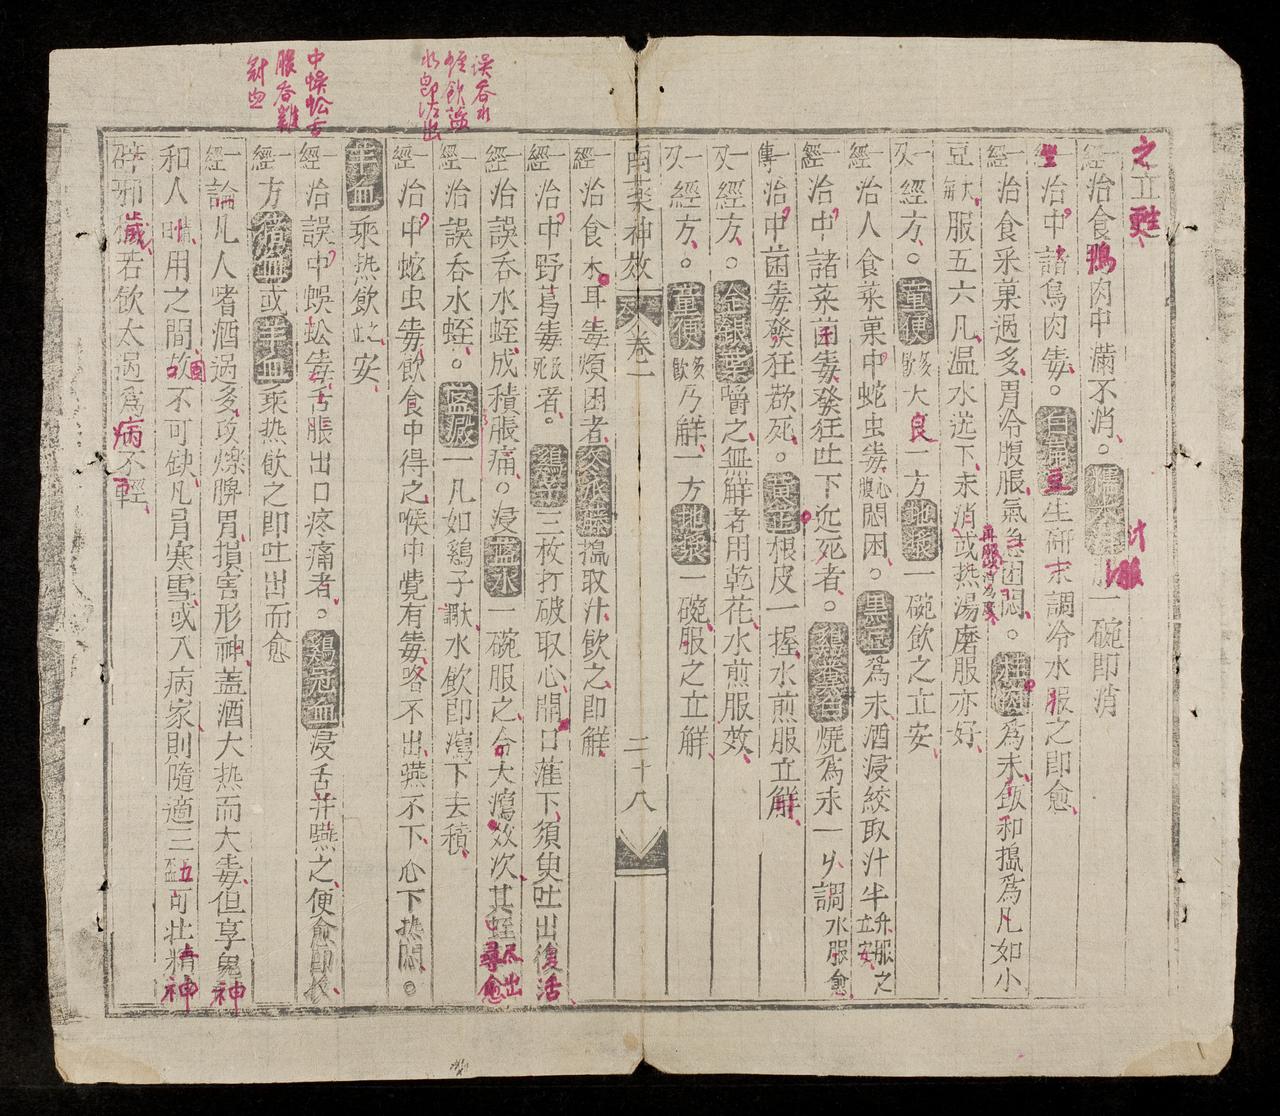 之立甦
一經治食鴨肉中滿不消。糯米泔服一碗即消
一經治中諸鳥肉毒。白扁豆生研末調冷水服之即愈
一經治食采菓過多胃冷腹脹氣急困悶。桂肉為末飯和搗為凡如小
豆大每服五六凡温水送下未消或热湯磨服亦好
一又經方。童便多飲大良一方地漿一碗飲之立安
一經治人食菜菓中蛇虫毒心腹悶困。黑豆為末酒浸絞取汁半升服之立安
一經治中諸菜菌毒發狂吐下近死者。鷄糞白燒為末一匁調水服愈
一傳治中菌毒發狂欲死。黃芷根皮一握水煎服立解
一又經方。金銀葉嚼之血解者用乾花水煎服效
一又經方。童便多飲乃解一方地漿一碗服之立解
南藥神效 卷二 二十八
一經治食木耳毒煩困者冬瓜藤搗取汁飲之即解
一經治中野葛毒死者。鷄子三枚打破取心開口灌下須臾吐出復活
一經治誤吞水蛭成積脹痛。浸藍水一碗服之令大瀉效次其蛭尽出尋愈
一經治誤吞水蛭。藍澱一凡如鷄子歃水飲即瀉下去積
一經治中蛇虫毒飲食中得之喉中覺有毒咯不出嚥不下心下热悶。
羊血乘热飲之安
一經治誤中蜈蚣毒舌脹出口疼痛者。鷄冠血浸舌并嚥之便愈
一經方猪血或羊血乘热飲之即吐出而愈
一經論凡人嗜酒過多攻爍脾胃損害形神盖酒大热而大毒但享鬼神
和人時用之間故不可缺凡冒寒雪或入病家則隨適三五盃可壯精神
辟邪穢若飲太過為病不輕
誤吞水
蛭飲藍
水即瀉出
中蜈蚣舌
脹吞雞
冠血